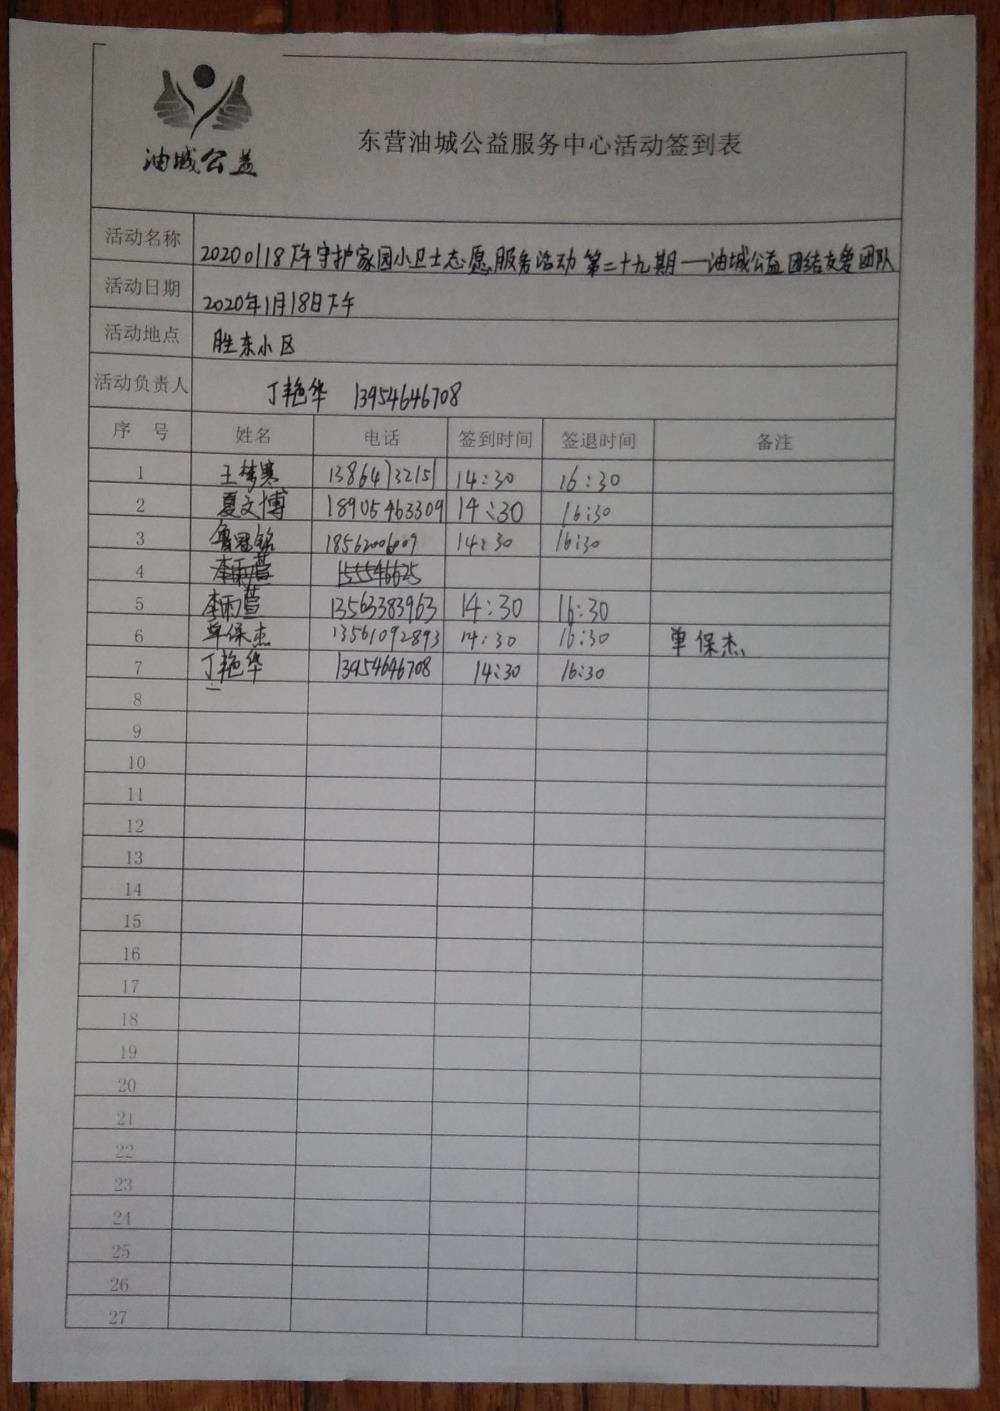 油城公益
东营油城公益服务中心活动签到表
活动名称 20200118下午守护家园小卫士志愿服务活动第二十九期一油城公益团结友爱团队
活动日期 2020年1月18日下午
活动地点 胜东小区
活动负责人 丁艳华 13954646708
序 号 姓名 电话 签到时间 签退时间 备注
1 王梦寒 13864732151 14:30 16:30
2 夏文博 18905463309 14:30 16:30
3 14:30 16:30
4 李雨萱
5 李雨萱 13563383963 14:30 16:30
6 单保杰 13561092893 14:30 16:30 单保杰
7 丁艳华 13954646708 14:30 16:30
8
9
10
11
12
13
14
15
16
17
18
19
20
21
22
23
24
25
26
27